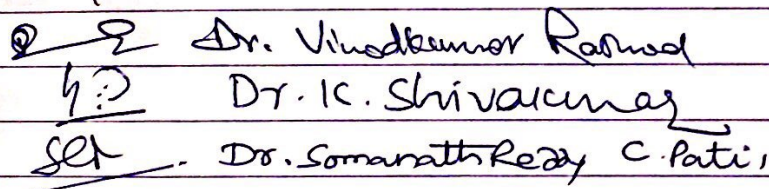 Dr. Vinodkumar Rathod
Dr. K. Shivakumar
Dr. Somanath Reddy C. Patil